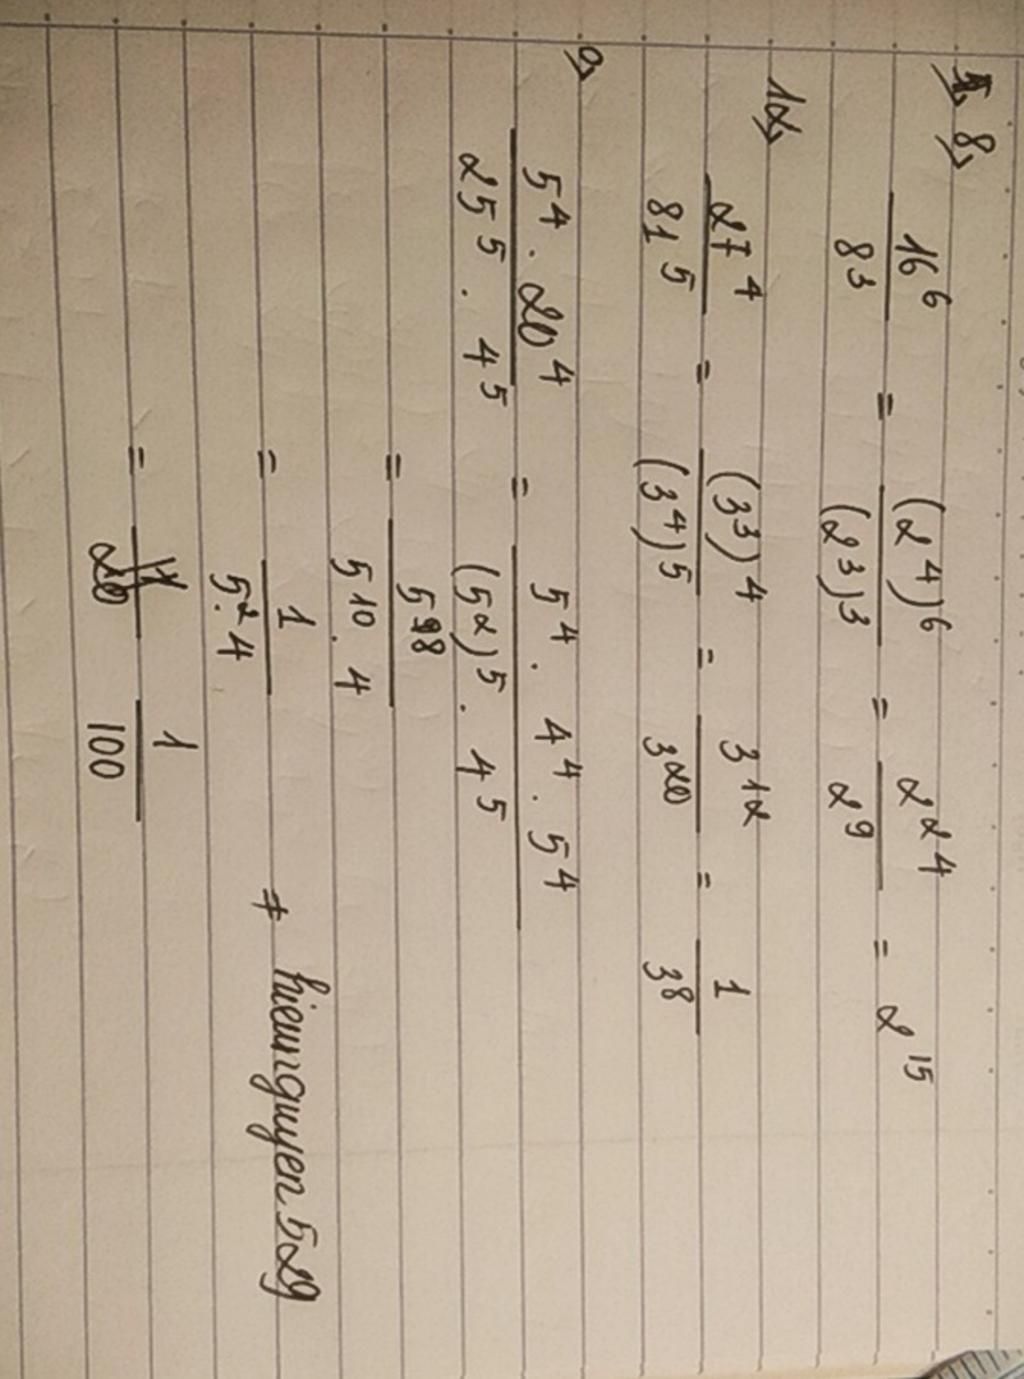 8, 16^6 / 8^3 = (2^4)^6 / (2^3)^3 = 2^24 / 2^9 = 2^15
12, 27^4 / 81^5 = (3^3)^4 / (3^4)^5 = 3^12 / 3^20 = 1 / 3^8
5^4 . 20^4 / 25^5 . 4^5 = 5^4 . 4^4 . 5^4 / (5^2)^5 . 4^5
= 5^8 / 5^10 . 4
= 1 / 5^2 . 4
= 1 / 100
hieunguyen529